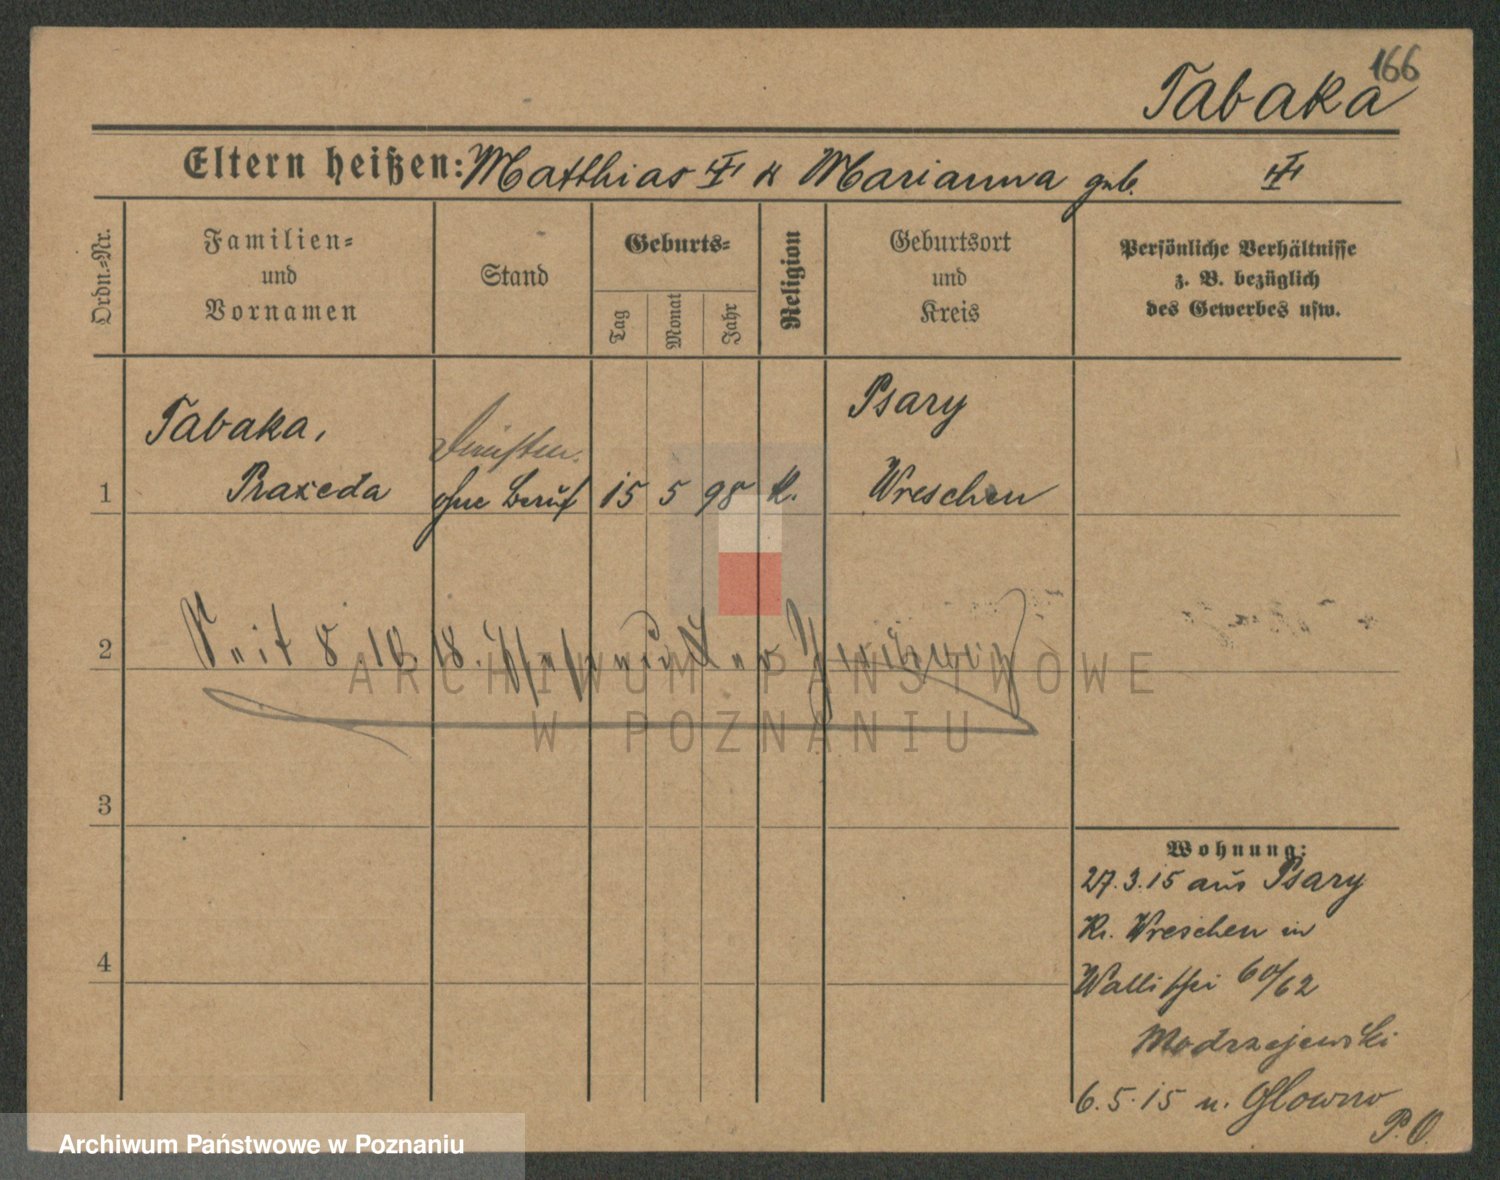 166
Tabaka
Eltern heißen: Matthias & Marianna geb.
Ordn.=Nr.
Familien=
und
Vornamen
Stand
Geburts=
Tag
Monat
Jahr
Religion
Geburtsort
und
Kreis
Persönliche Verhältnisse
z. B. bezüglich
des Gewerbes usw.
Tabaka,
Psary
1 Praxeda ohne Beruf 15 5 98 k. Wreschen
2 Seit 8.10.18.
3
4
Wohnung:
27.3.15 aus Psary
Kr. Wreschen in
Wallischei 60/62
Modrzejewski
6.5.15 n. Glowno
P. O.
ARCHIWUM PAŃSTWOWE
W POZNANIU
Archiwum Państwowe w Poznaniu